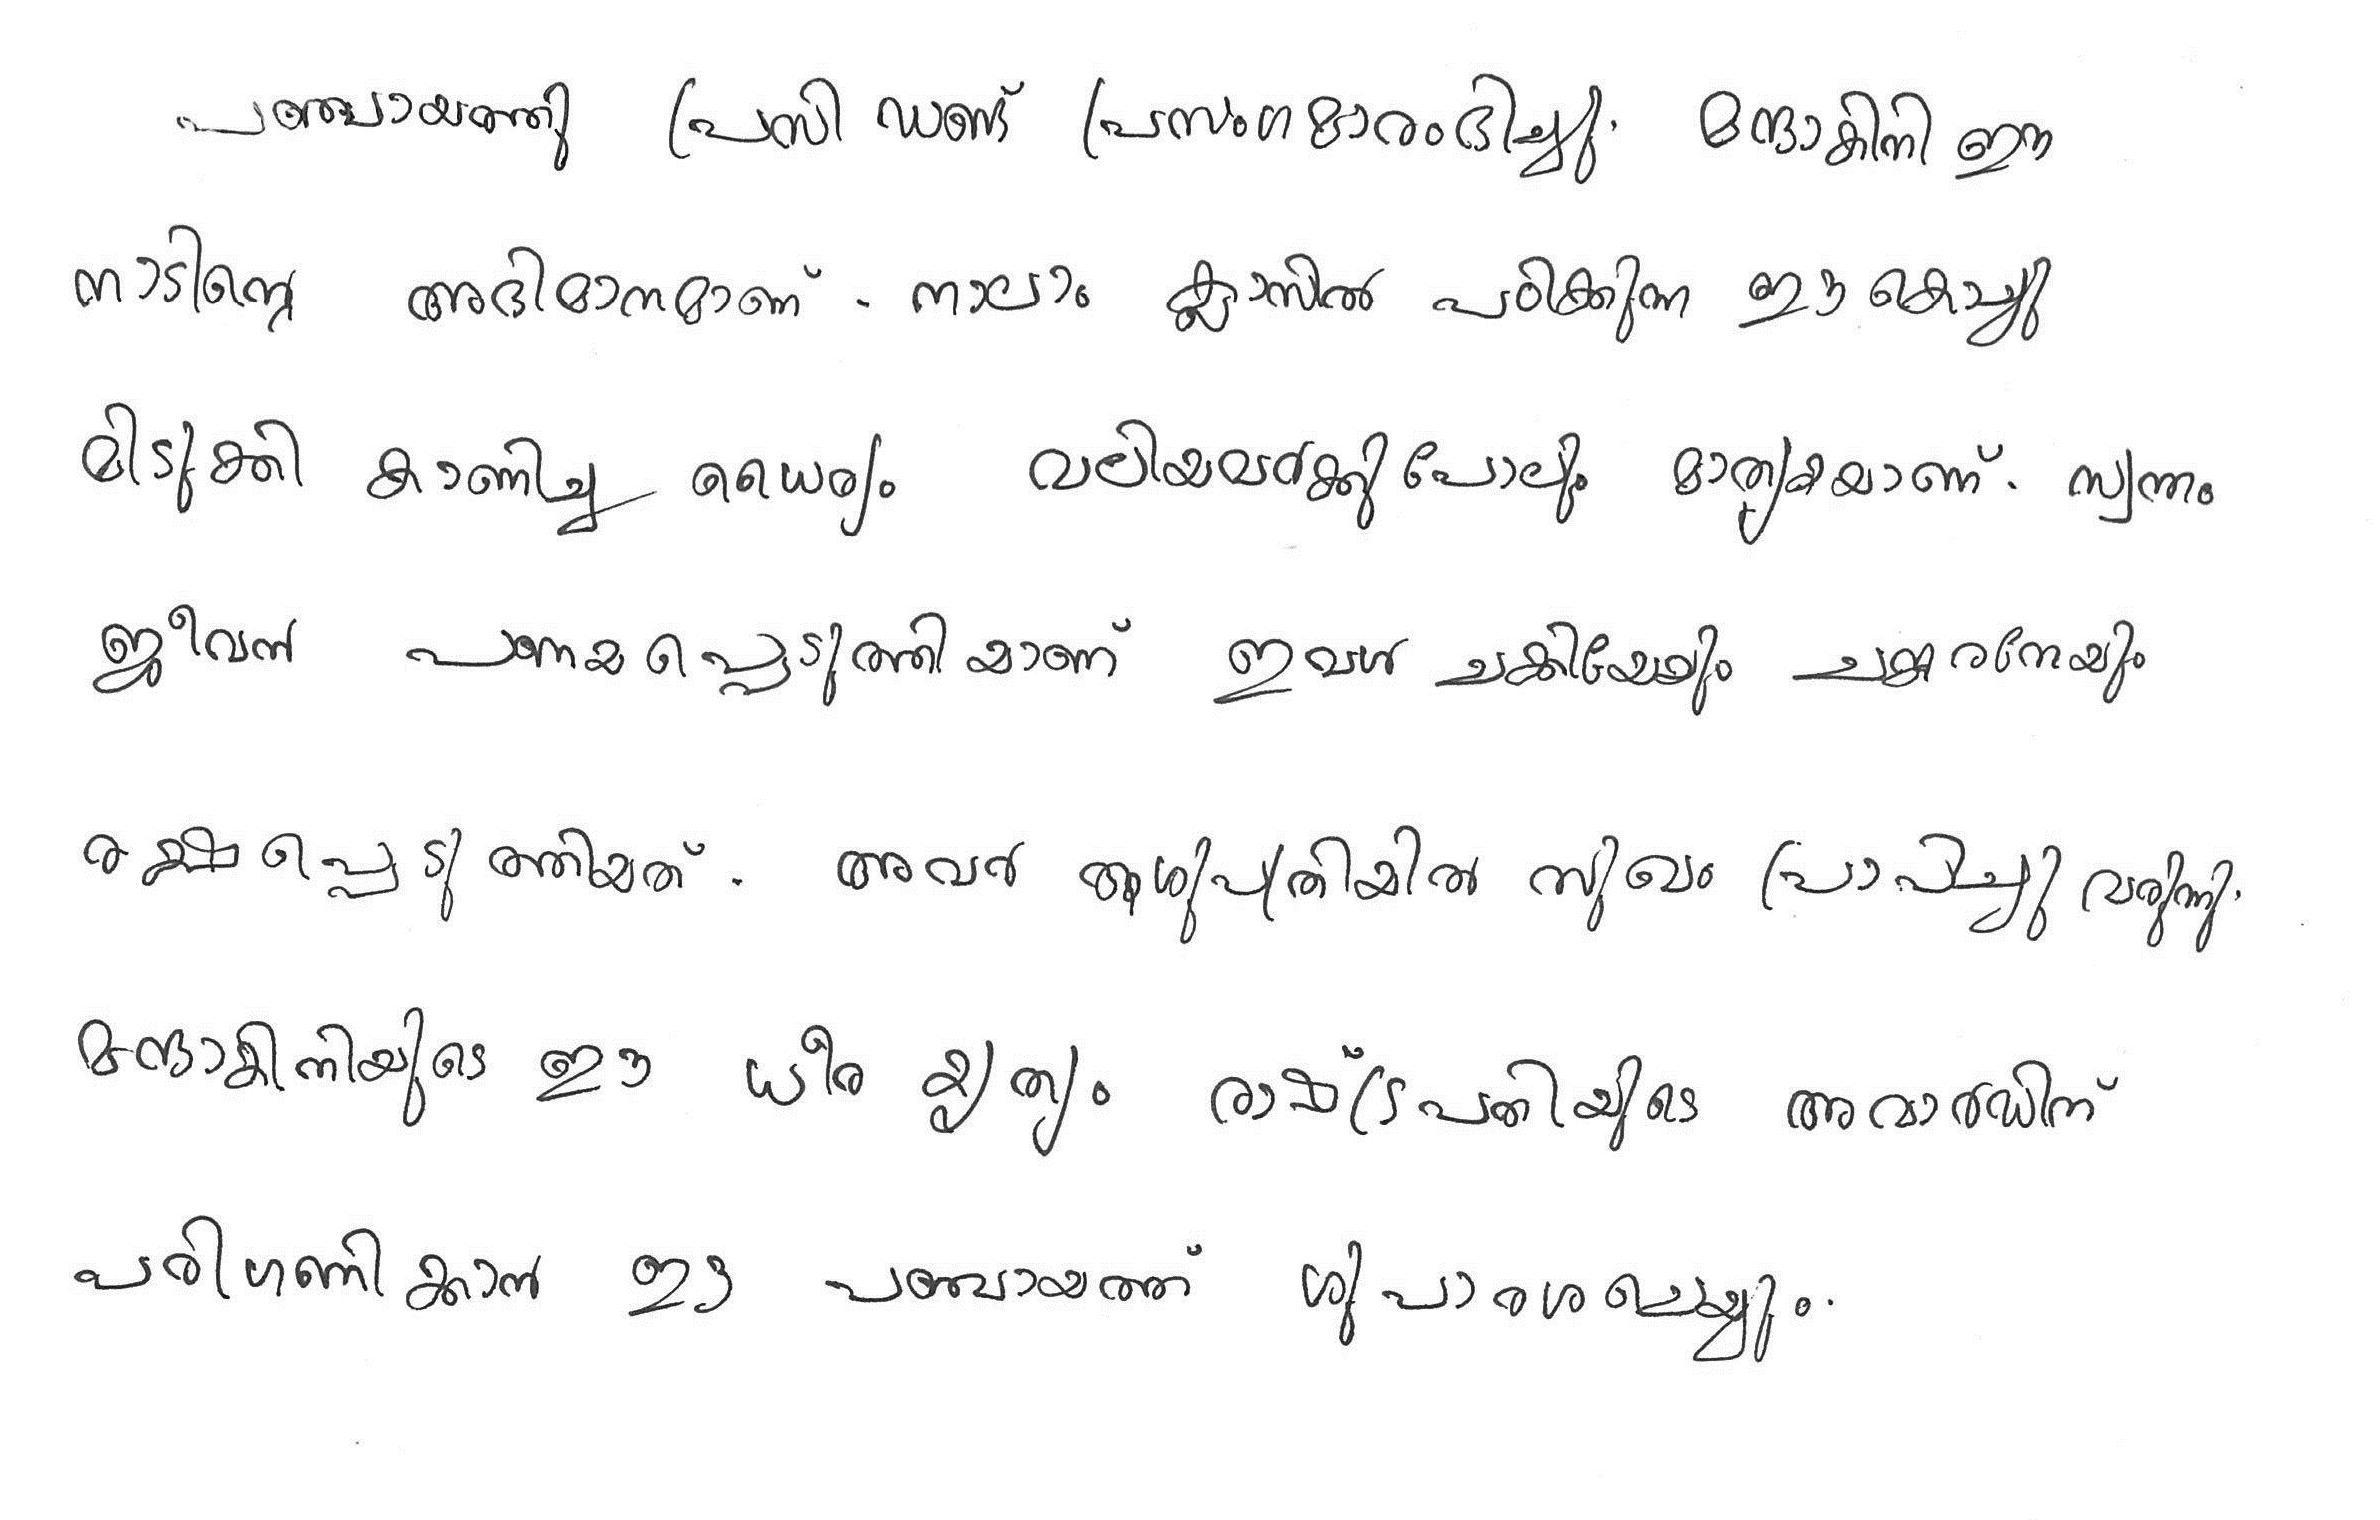 പഞ്ചായത്തു പ്രസിഡണ്ട് പ്രസംഗമാരംഭിച്ചു. മന്ദാകിനി ഈ
നാടിന്റെ അഭിമാനമാണ്. നാലാം ക്ലാസിൽ പഠിക്കുന്ന ഈ കൊച്ചു
മിടുക്കി കാണിച്ച ധൈര്യം വലിയവർക്കുപോലും മാതൃകയാണ്. സ്വന്തം
ജീവൻ പണയപ്പെടുത്തിയാണ് ഇവൾ ചക്കിയേയും ചങ്കരനേയും
രക്ഷപ്പെടുത്തിയത്. അവർ ആശുപത്രിയിൽ സുഖം പ്രാപിച്ചു വരുന്നു.
മന്ദാകിനിയുടെ ഈ ധീര കൃത്യം രാഷ്ട്രപതിയുടെ അവാർഡിന്
പരിഗണിക്കാൻ ഈ പഞ്ചായത്ത് ശുപാരശചെയ്യും.